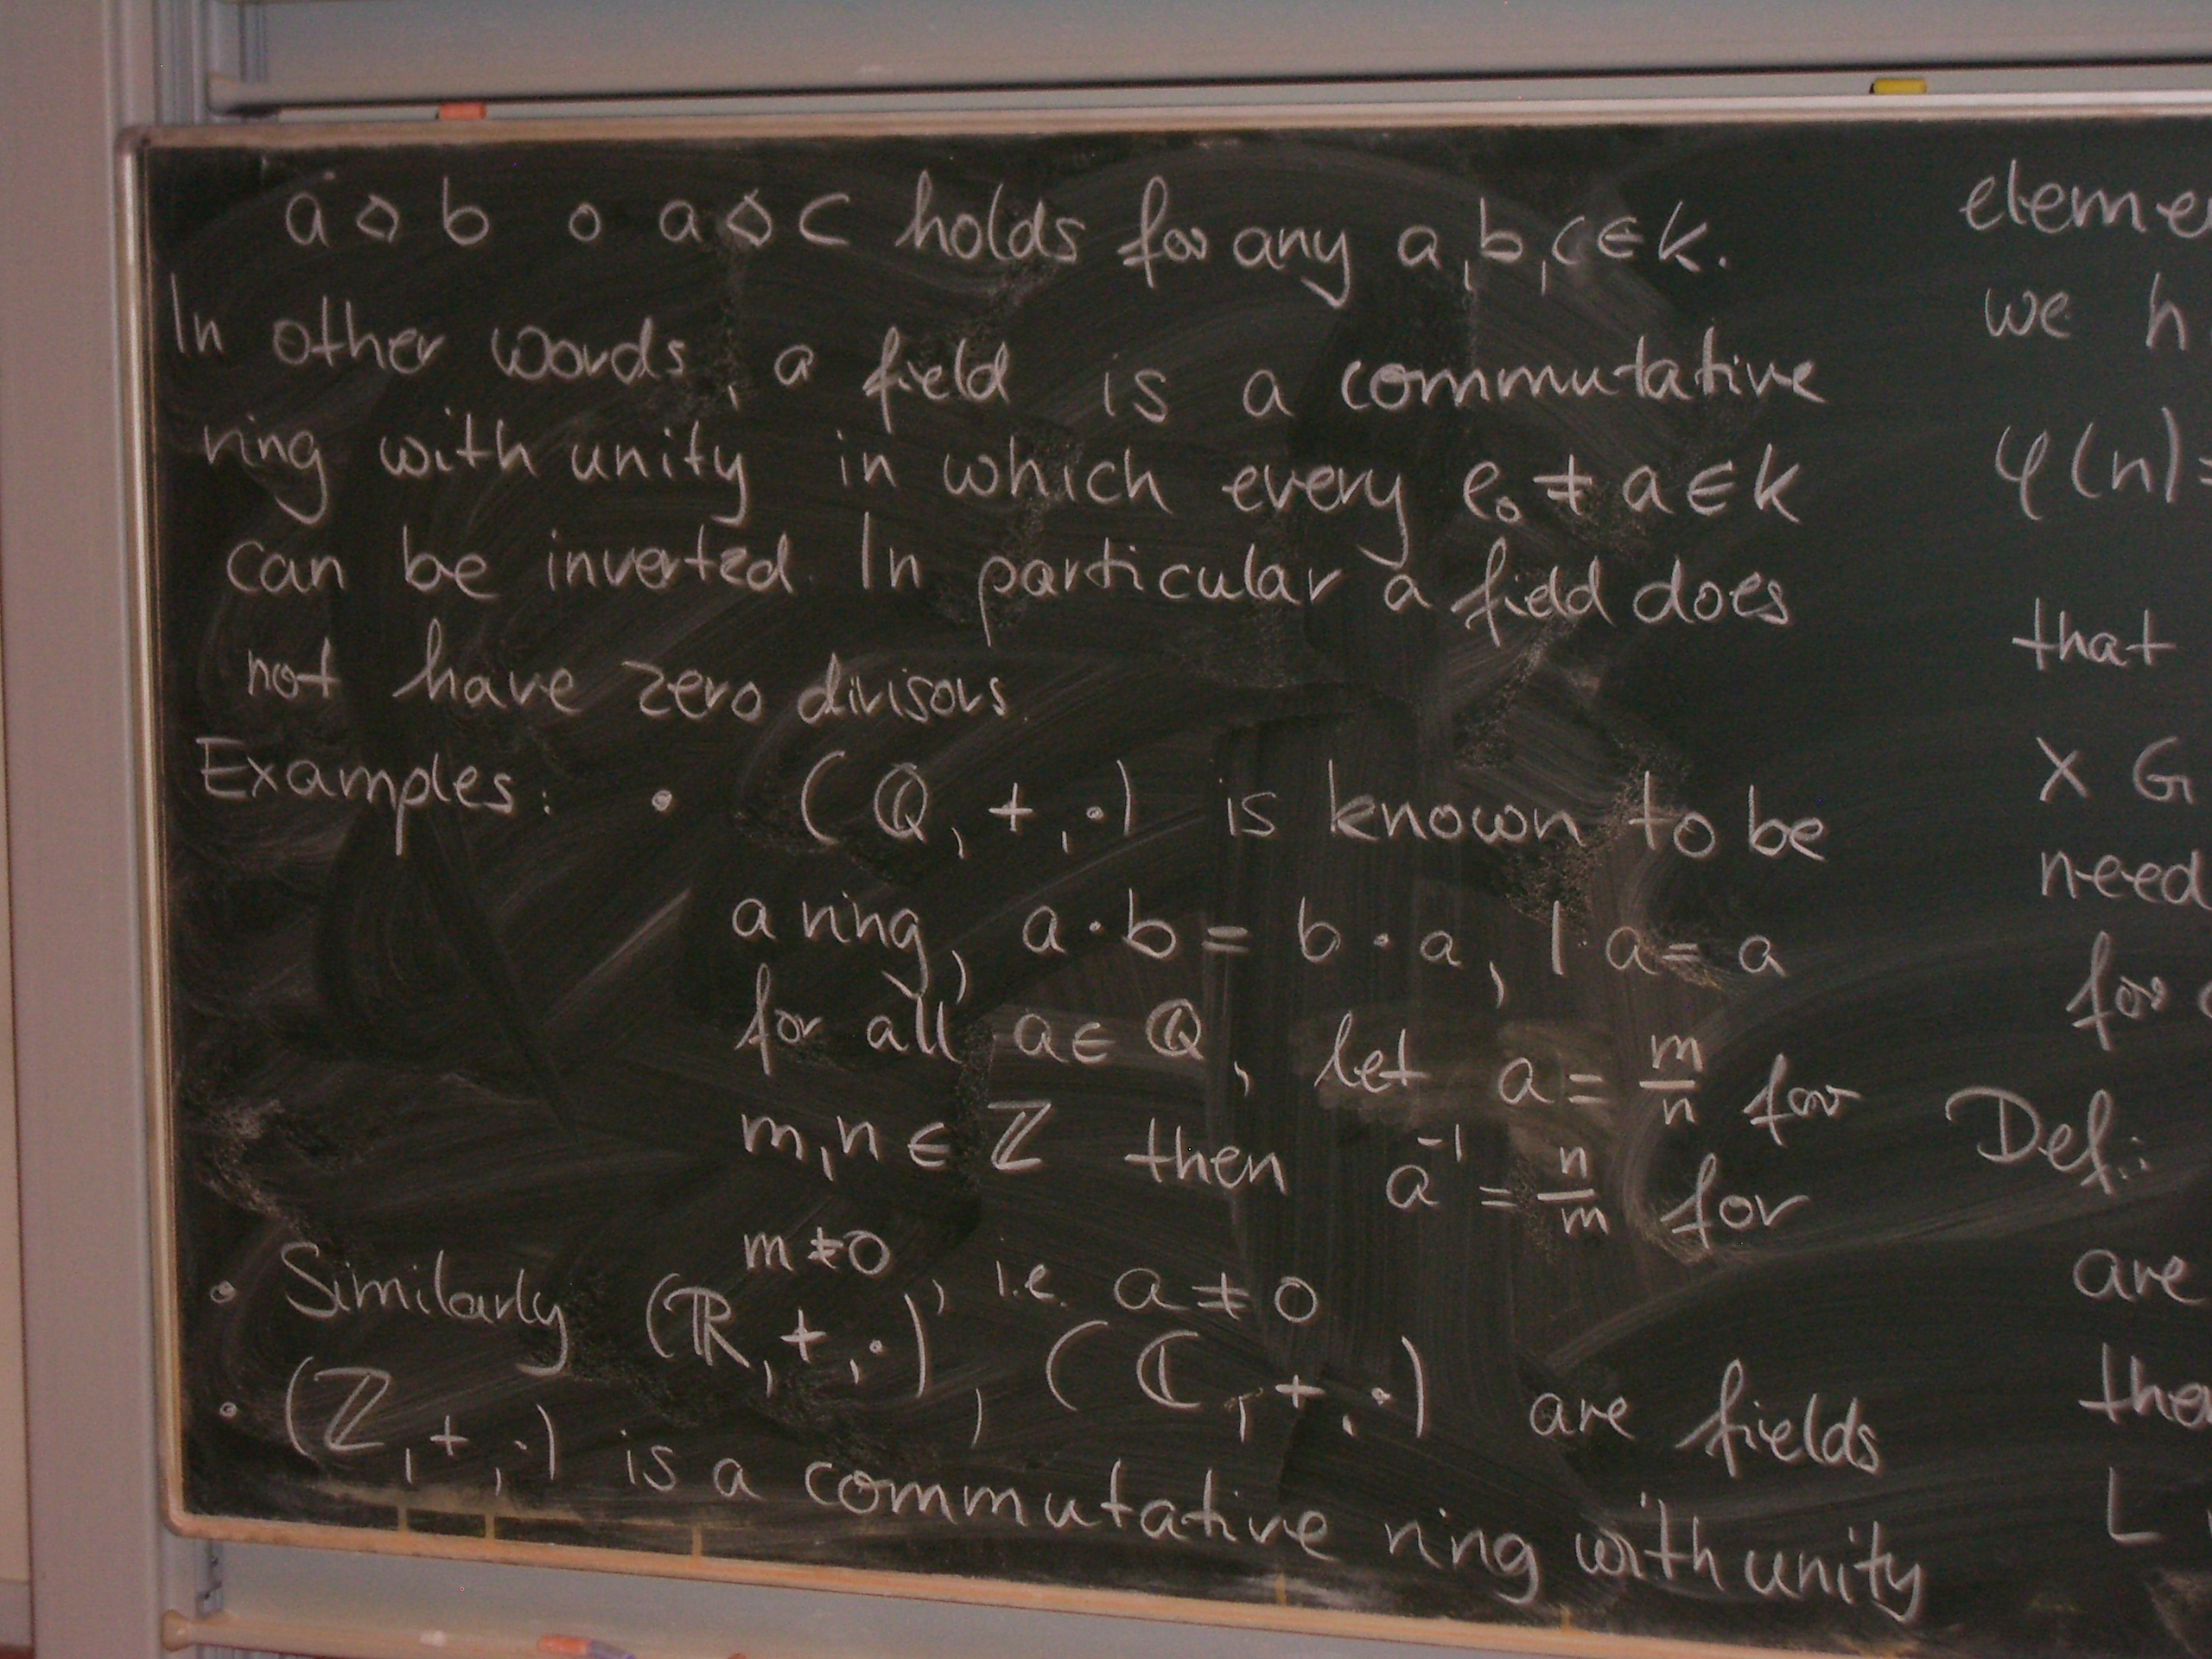 a ⋄ b ∘ a ⋄ c holds for any a, b, c ∈ K.
In other words, a field is a commutative
ring with unity in which every e∘ ≠ a ∈ K
can be inverted. In particular a field does
not have zero divisors
Examples: • (ℚ, +, ·) is known to be
a ring, a · b = b · a, 1 · a = a
for all a ∈ ℚ, let a = m/n for
m, n ∈ ℤ then a⁻¹ = n/m for
m ≠ 0, i.e. a ≠ 0
• Similarly (ℝ, +, ·), (ℂ, +, ·) are fields
• (ℤ, +, ·) is a commutative ring with unity
we h
φ(n) =
that
× G
need
for
Def.:
are
L